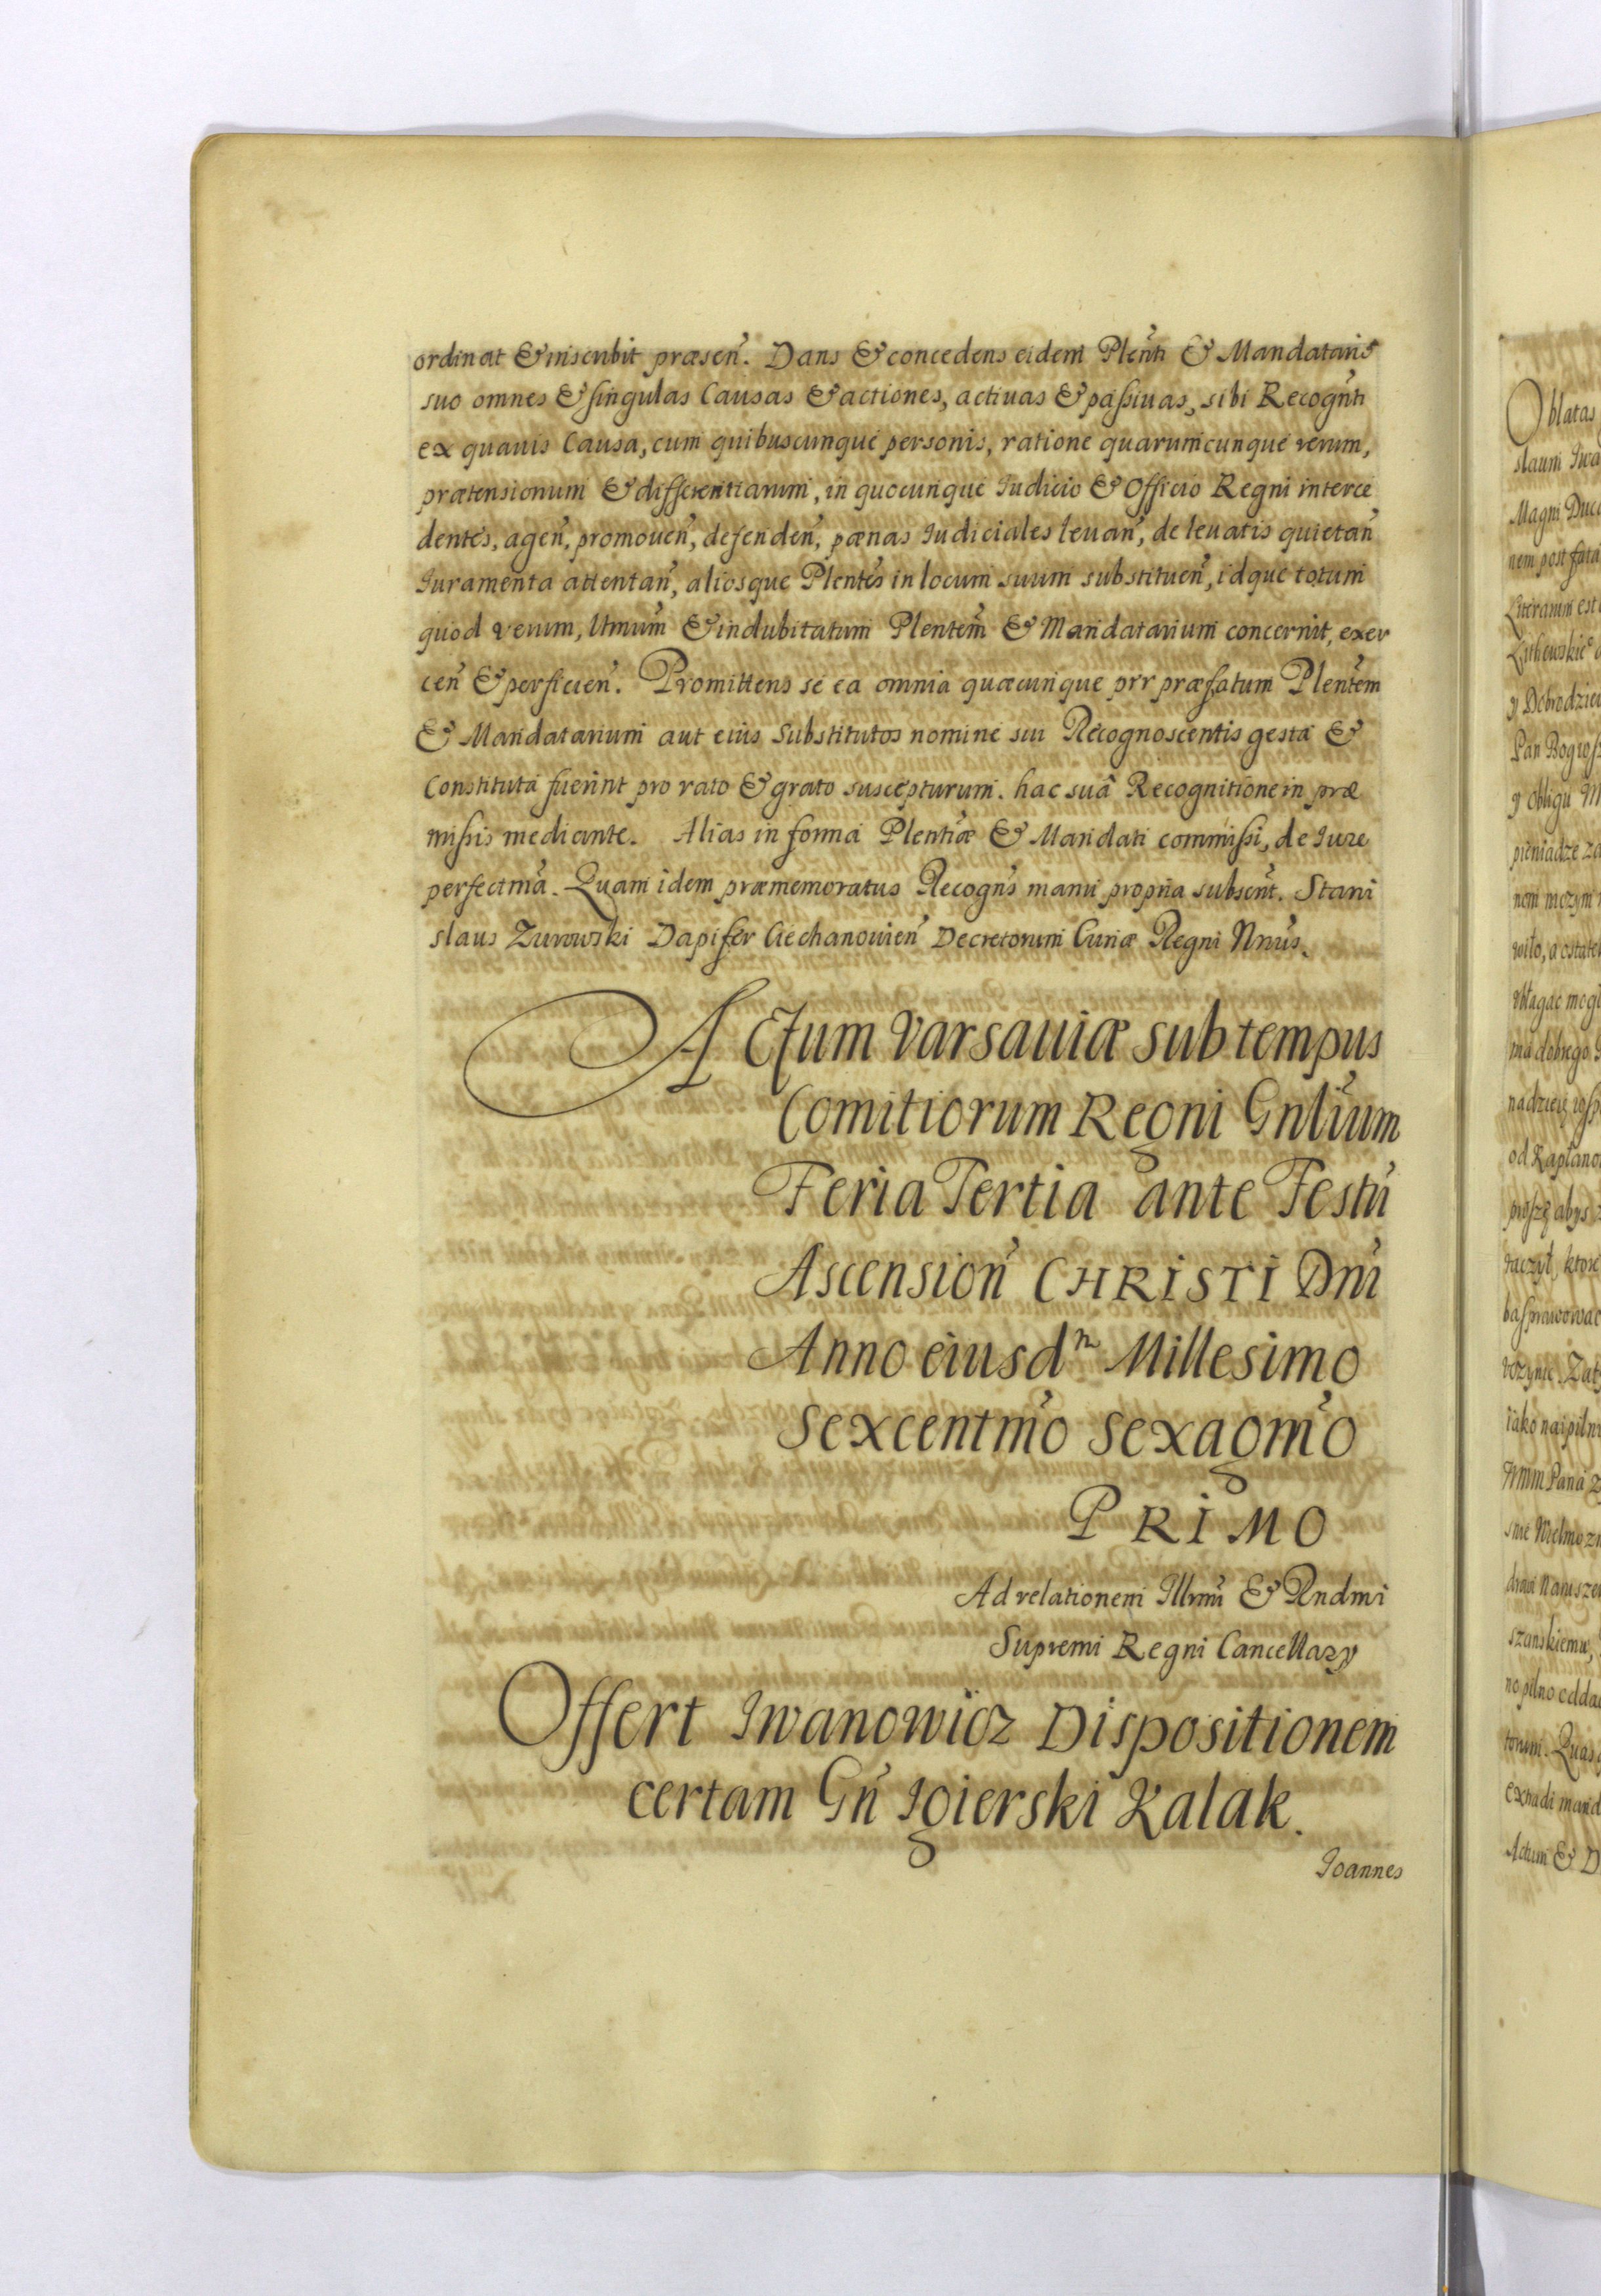 ordinat & inscribit præsen̄. Dans & concedens eidem Plen̄ti & Mandatario
suo omnes & singulas Causas & actiones, actiuas & paßiuas, sibi Recogn̄ti
ex quauis Causa, cum quibuscunque personis, ratione quarumcunque rerum,
prætensionum & differentiarum, in quocunque Iudicio & Officio Regni interce
dentes, agen̄, promouen̄, defenden̄, pœnas Iudiciales leuan̄, de leuatis quietan̄
Iuramenta attentan̄, aliosque Plen̄tes in locum suum substituen̄, idque totum
quod verum, ltmum̄ & indubitatum Plentem̄ & Mandatarium concernit, exer
cen̄ & perficien̄. Promittens se ea omnia quæcunque prr præfatum Plen̄tem
& Mandatarium aut eius Substitutos nomine sui Recognoscentis gesta &
Constituta fuerint pro rato & grato suscepturum. hac suâ Recognitione in præ
mißis mediante. Alias in forma Plen̄tiæ & Mandati commißi, de Iure
perfectm̄a. Quam idem præmemoratus Recogn̄s manu propria subscr̄t. Stani
slaus Zurowski Dapifer Ciechanouien̄ Decretorum Curiæ Regni Nrius̄.
Actum Varsauiæ sub tempus
Comitiorum Regni Gnlium̄
Feria Tertia ante Festū
Ascension̄ CHRISTI Dni̅
Anno eiusdⁿ Millesimo
Sexcentm̄o Sexagm̄o
PRIMO
Ad relationem Illrmi̅ & Rndmi
Supremi Regni Cancellary
Offert Iwanowicz Dispositionem
certam Gn̄ Igierski Kalak.
Ioannes
Oblatas
slaum Iwa
Magni Duca
nem post fata
Literarum est
y Dobrodziei
y obligu
pieniadze za
wiło, a ostatek
od Kapłano
proszę abys
raczył, ktore
iako naipilni
szanskiemu,
no pilno odda
torum. Quas
extradi mand
Actum & D